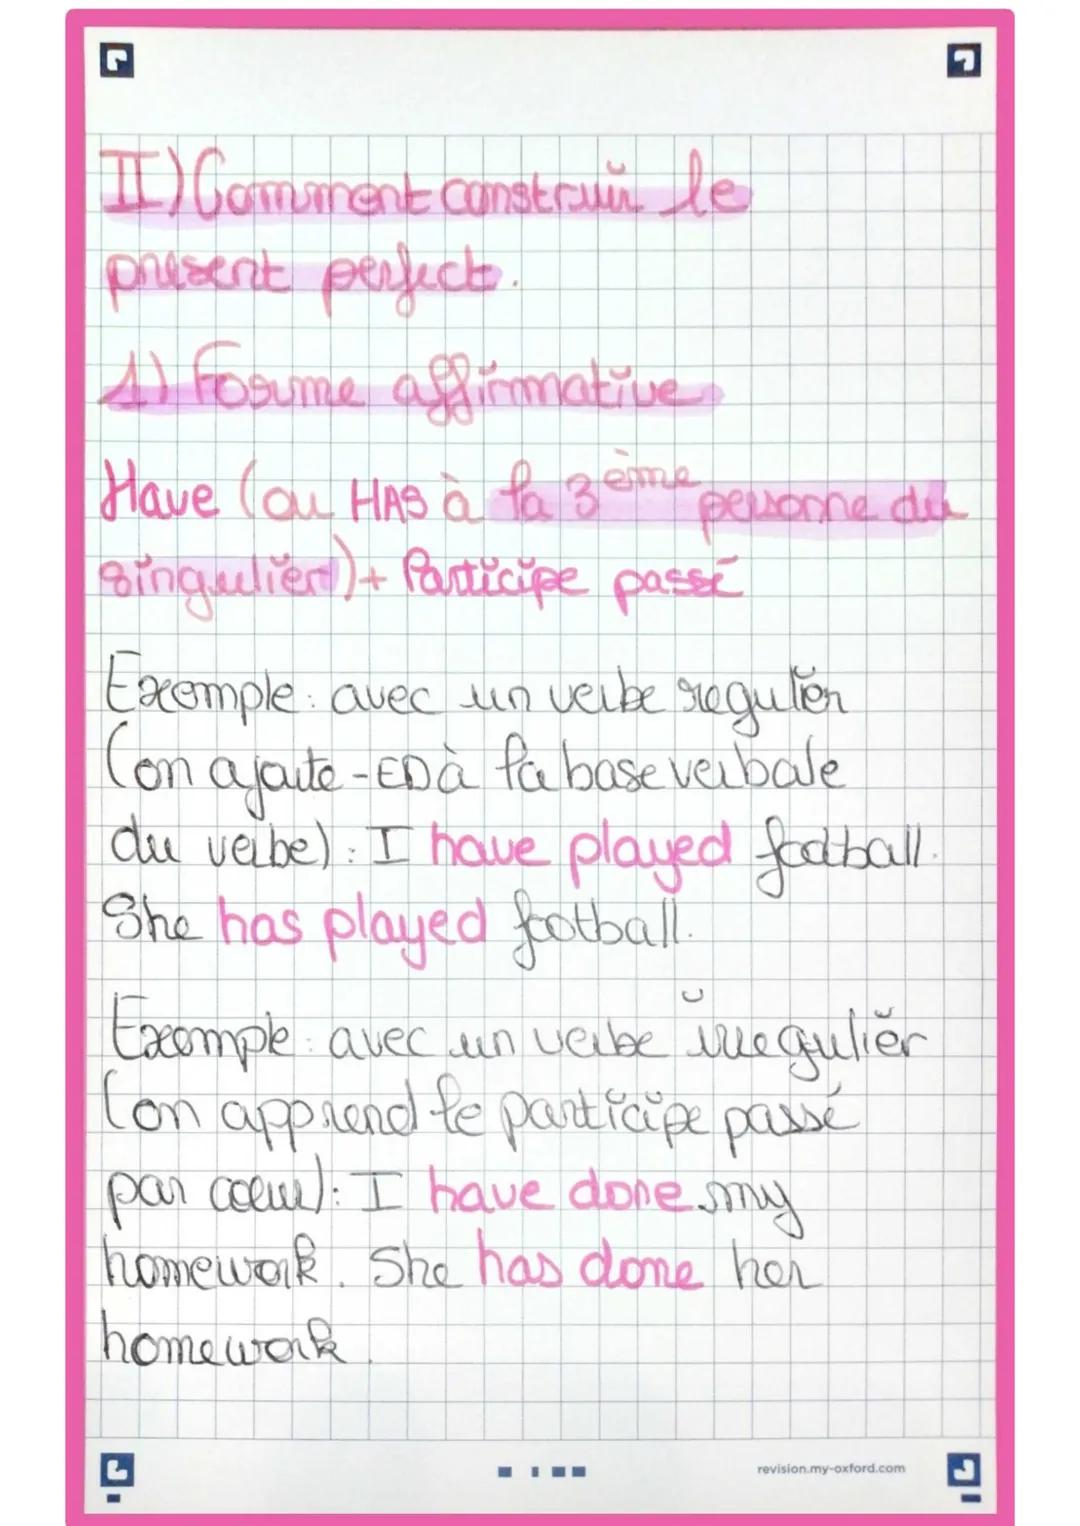 II) Comment construir le
present perfect.
1) Forme affirmative
Have (ou HAS à la 3ème personne du
singulier) + Participe passé
Exemple : avec un verbe regulier
(on ajoute -ED à la base verbale
du verbe) : I have played football.
She has played football.
Exemple : avec un verbe irregulier
(on apprend le participe passé
par coeur) : I have done my
homework. She has done her
homework.
revision.my-oxford.com